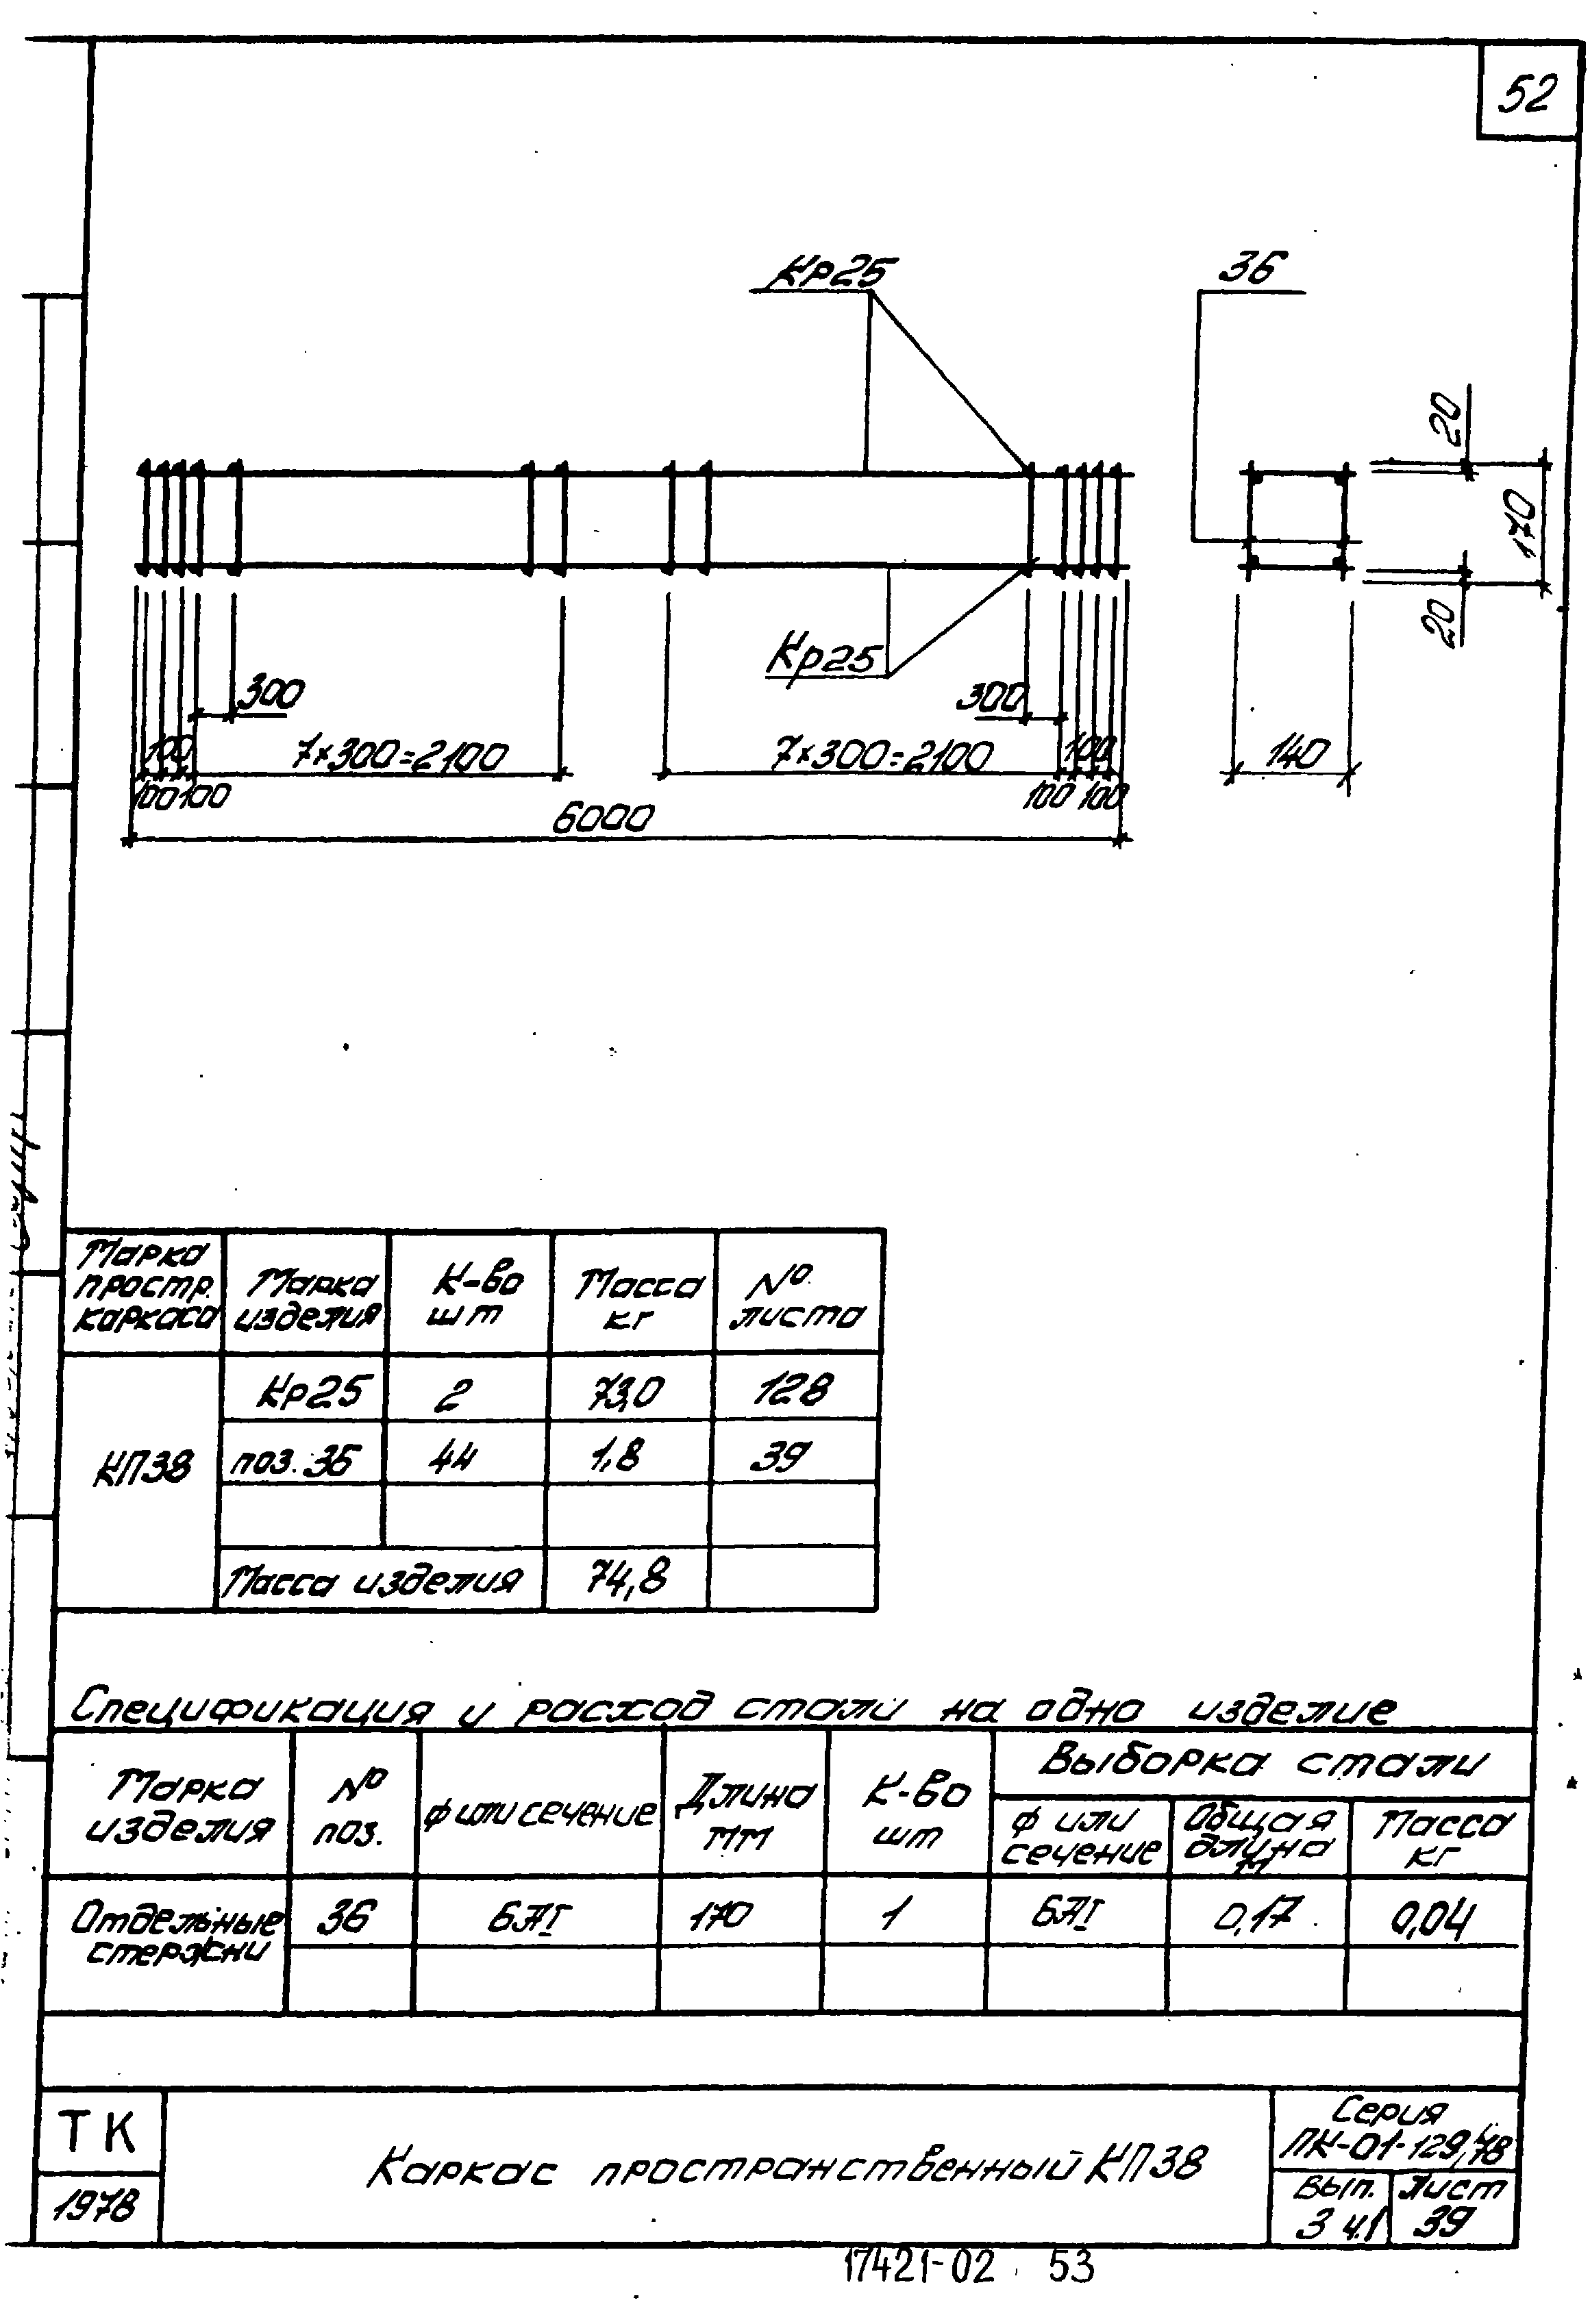 52
Кр25
36
20
170
20
Кр25
300
300
100
7×300=2100
7×300=2100
100
140
100 100
100 100
6000
Марка простр. каркаса
Марка изделия
К-во шт
Масса кг
№ листа
КП38
Кр25 2 73,0 128
поз. 36 44 1,8 39
Масса изделия 74,8
Спецификация и расход стали на одно изделие
Марка изделия
№ поз.
ф или сечение
Длина мм
К-во шт
Выборка стали
ф или сечение
Общая длина м
Масса кг
Отдельные стержни
36 6АI 170 1 6АI 0,17 0,04
ТК
1978
Каркас пространственный КП38
Серия
ПК-01-129/78
Вып. Лист
3 ч.1 39
17421-02 53